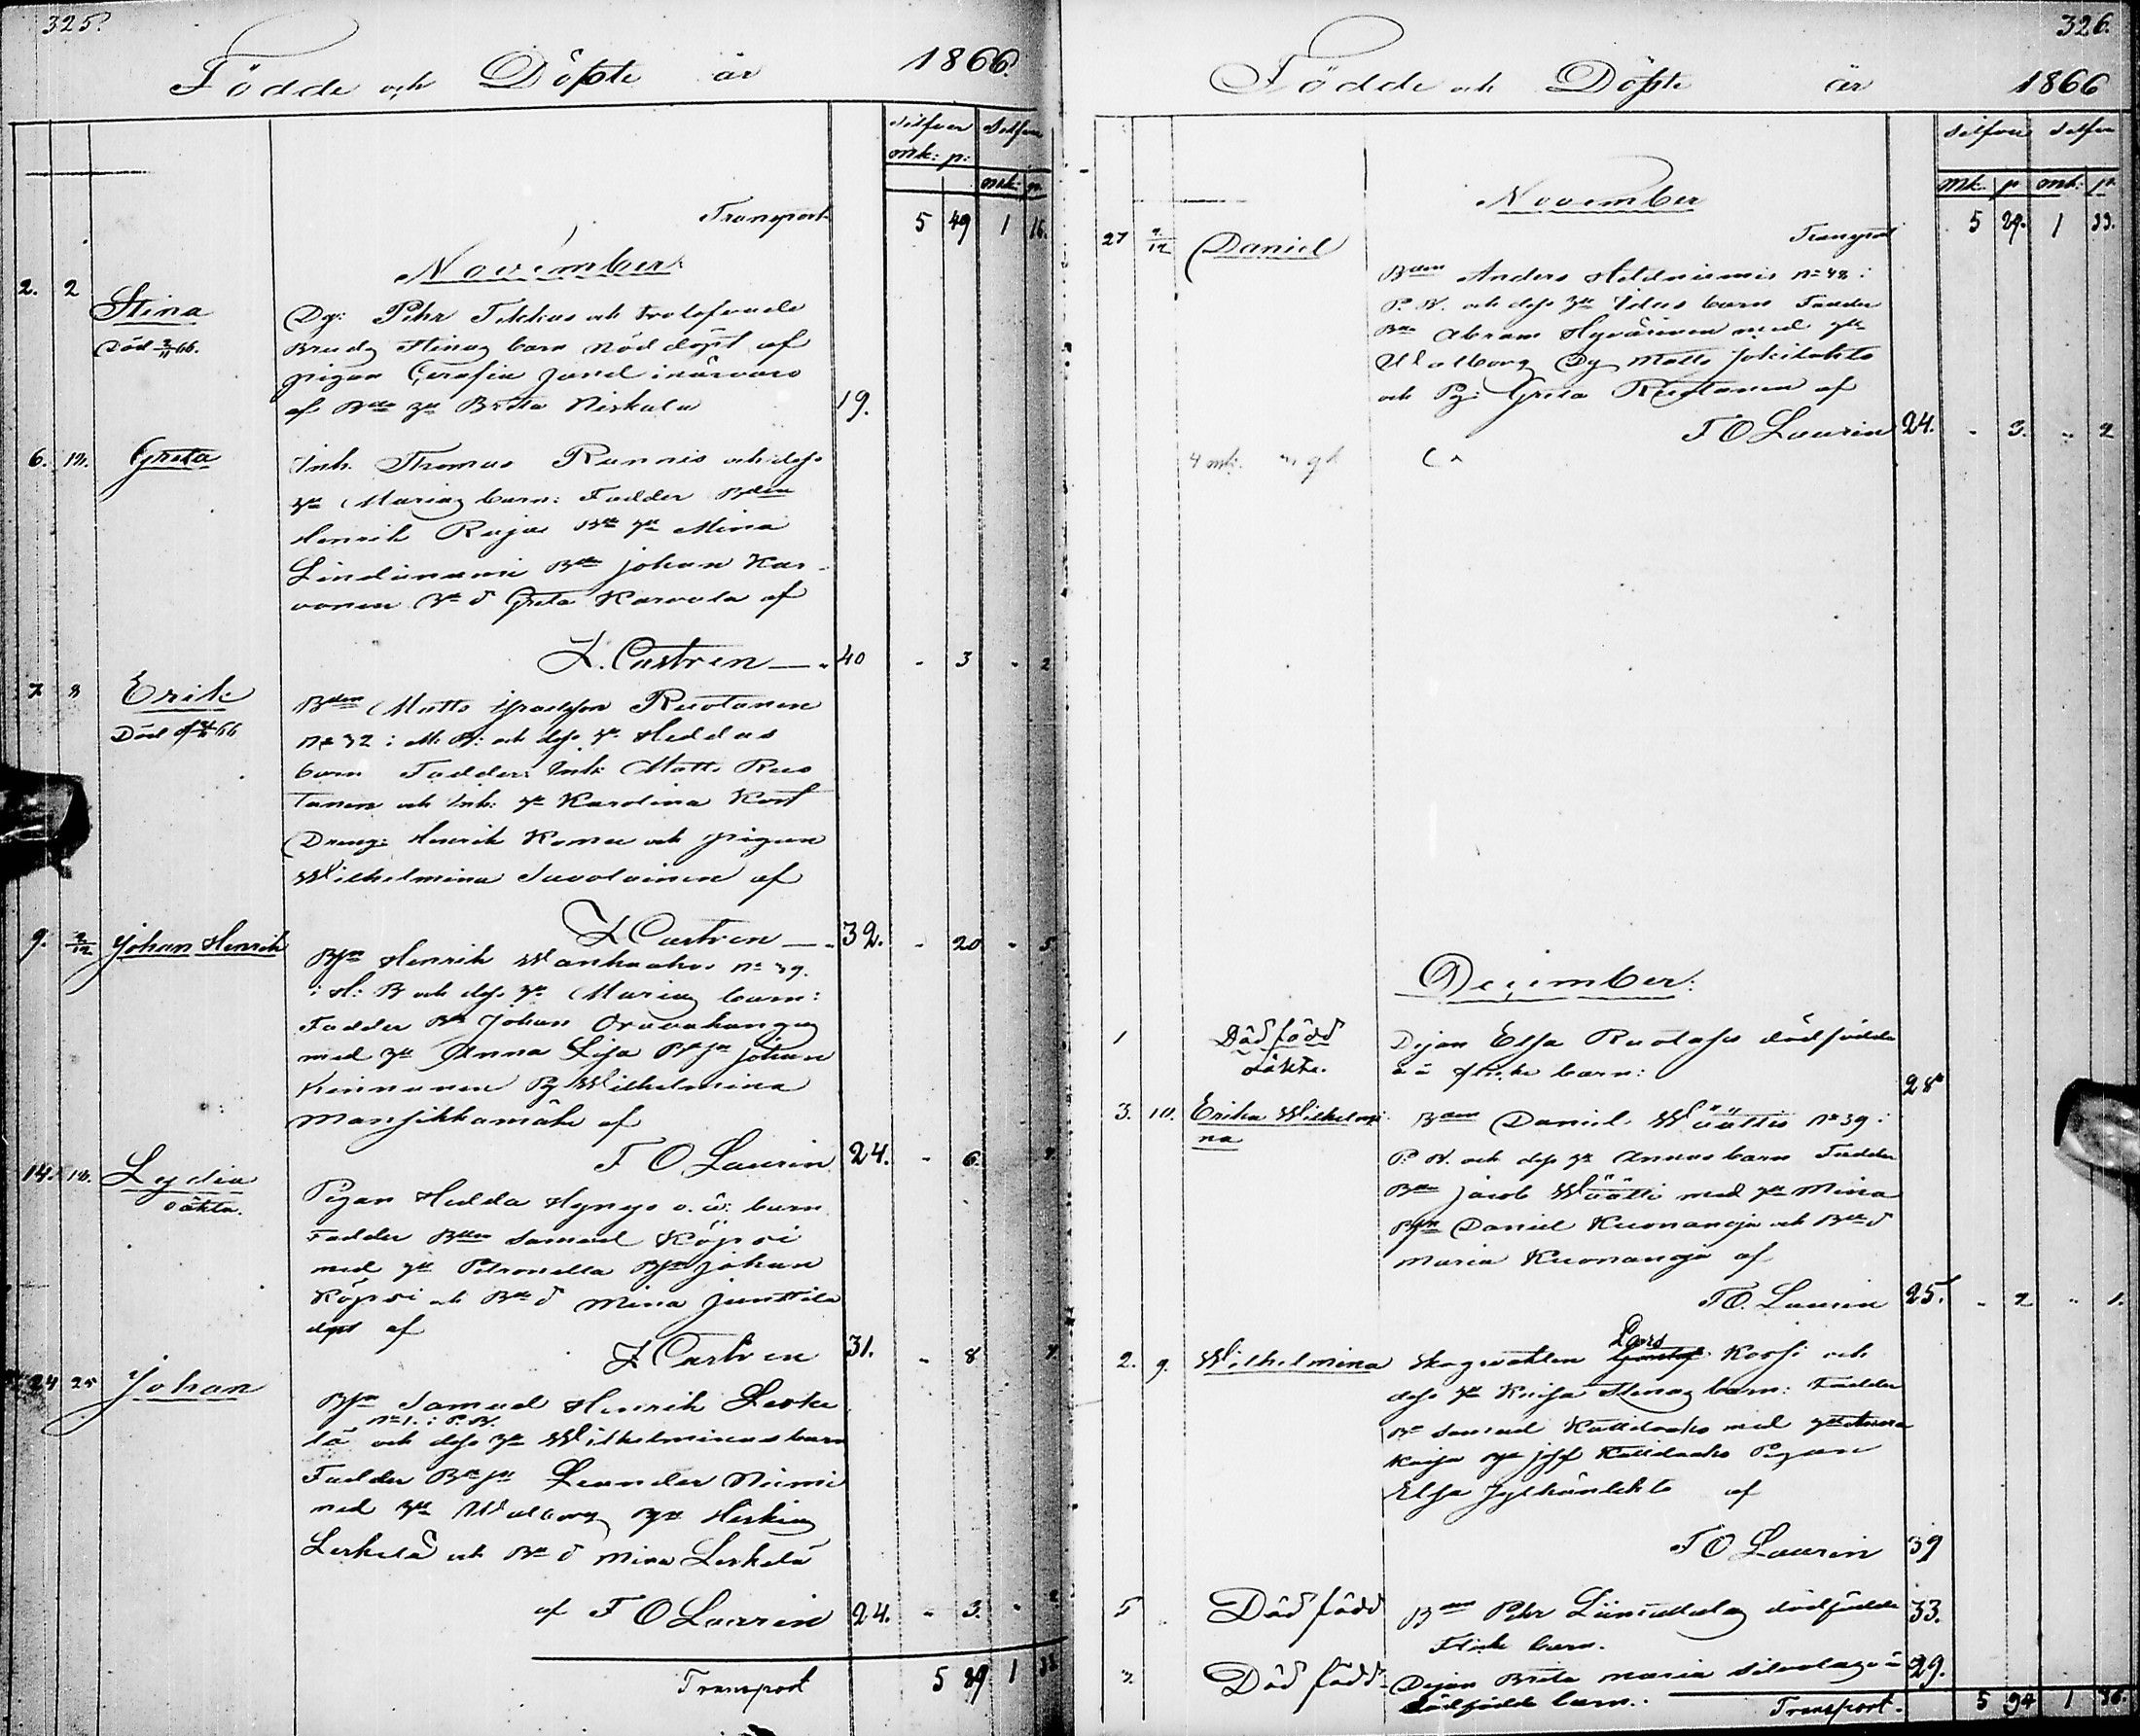 325.
Födde och Döpte år 1866.
Silfver Silfver
mk: p:
mk. p.
Transport 5 49 1 16.
November
2. 2 Stina
Död 2/11 66.
Dg: Pehr Tikkas och trolofvade
Brud Stinas barn nöddöpt af
pigan Serafia
af Bde hu Brita Niskala 19.
6. 12. Greta
Inh. Thomas Runnis och dess
hu Marias barn: Fadder Bden
Henrik Ruja Bde hu Mina
Lindiniemi Bden Johan Kar-
vonen Bde d Greta Karvola af
L. Castren 40 - 3 - 2
7. 8 Erik
Död 66
Bden Matts Ruotanen
No 32 i M. B: och dess hu Heddas
barn Fadder: Inh: Matts Ruo
tanen och Inh: hu Karolina Kort
Dreng: Henrik Komu och pigan
Wilhelmina Savolainen af
L Castren 32. - 20 - 5
9. 9/12 Johan Henrik
Bsn Henrik Wanhaaho No 39.
i H: B och dess hu Marias barn:
Fadder Bn Johan Oravakangas
med hu Anna Lisa Bde sn Johan
Kinnunen Pg Wilhelmina
Mansikkamäki af
F O Laurin 24. - 6. 2.
14. 18. Lydia
oäkta.
Pigan Hedda Hyngs o. ä: barn
Fadder Bden Samuel Köpsi
med hu Petronella Bsn Johan
Köpsi och Bde d Mina Junttila
döpt af
L Castren 31. - 8 2.
24 25 Johan
Bsn Samuel Henrik Leske
No 1. i P. N.
lä och dess hu Wilhelminas barn
Fadder Bde sn Leander Niemi
med hu Walborg Bsn Heikin
Leskelä och Bde d Mina Leskelä
af F O Laurin 24. - 3. - 2
Transport 5 89 1 33
326.
Födde och Döpte år 1866
Silfver Silfver
Mk. p mk: p.
November
Transport 5 89. 1 33.
27 9/12 Daniel
Bden Anders Hildniemis No 48 i
P. N. och dess hu Idas barn Fadder
Bden Abram Hyvärinen med hu
Walborg Dg Matts Jokitahto
och Pg: Greta Ruotanen af
F O Laurin 24. - 3. - 2
4 mk.
December:
1 Dödfödd
oäkta.
Pigan Elsa Ruotas dödfödda
o ä flicke barn: 28
3. 10. Erika Wilhelmi
na
Bden Daniel Wäättis No 39 i
P. N. och dess hu Annas barn Fadder
Bden Jacob Wäätti med hu Mina
Bsn Daniel Kuonanoja och Bde d
Maria Kuonanoja af
F O. Laurin 25. - 2 - 1.
2. 9. Wilhelmina
Lars
Skogvakten Gustaf Korhi och
dess hu Kaisa Stinas barn: Fadder
Bn Samuel Kattilaako med hu Anna
Kaisa Bsn Kattilaako Pigan
Elsa Jylhänlehto af
F O Laurin 39
5 Död född
Bden Pehr Liimattalas dödfödda 33.
Flick barn.
3. Död född
Pigan Brita Maria o ä 29.
dödfödde barn.
Transport. 5 94 1 36.